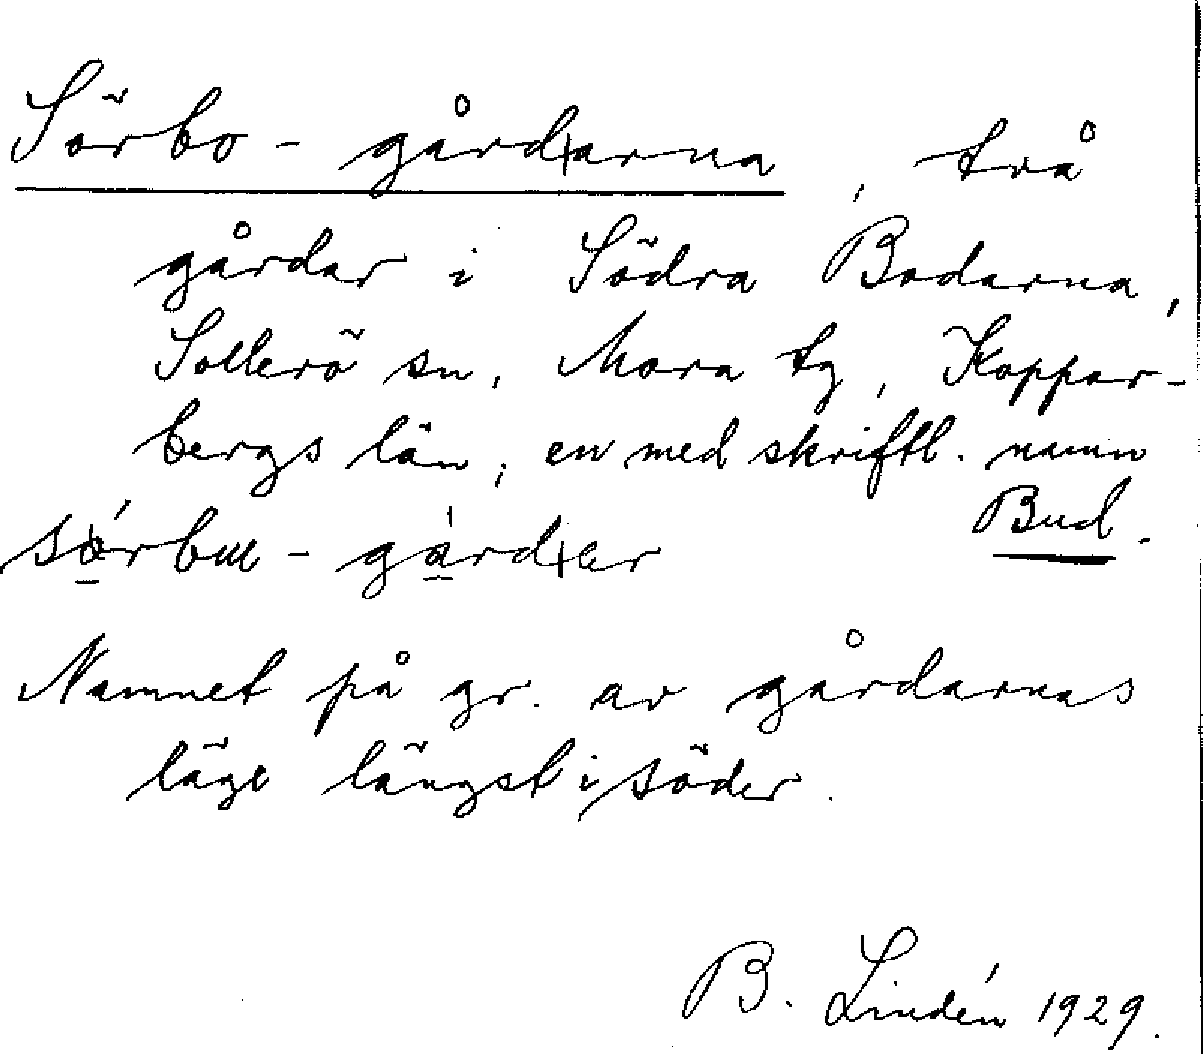 Sörbo-gårdarna, två
gårdar i Södra Bodarna,
Sollerö sn, Mora tg, Koppar-
bergs län, en med skriftl. namn
Bud.
Namnet på gr. av gårdarnas
läge längst i söder.
B. Lindén 1929.